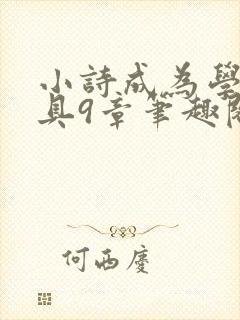 小詩成為學
具9章筆趣閱
何西慶